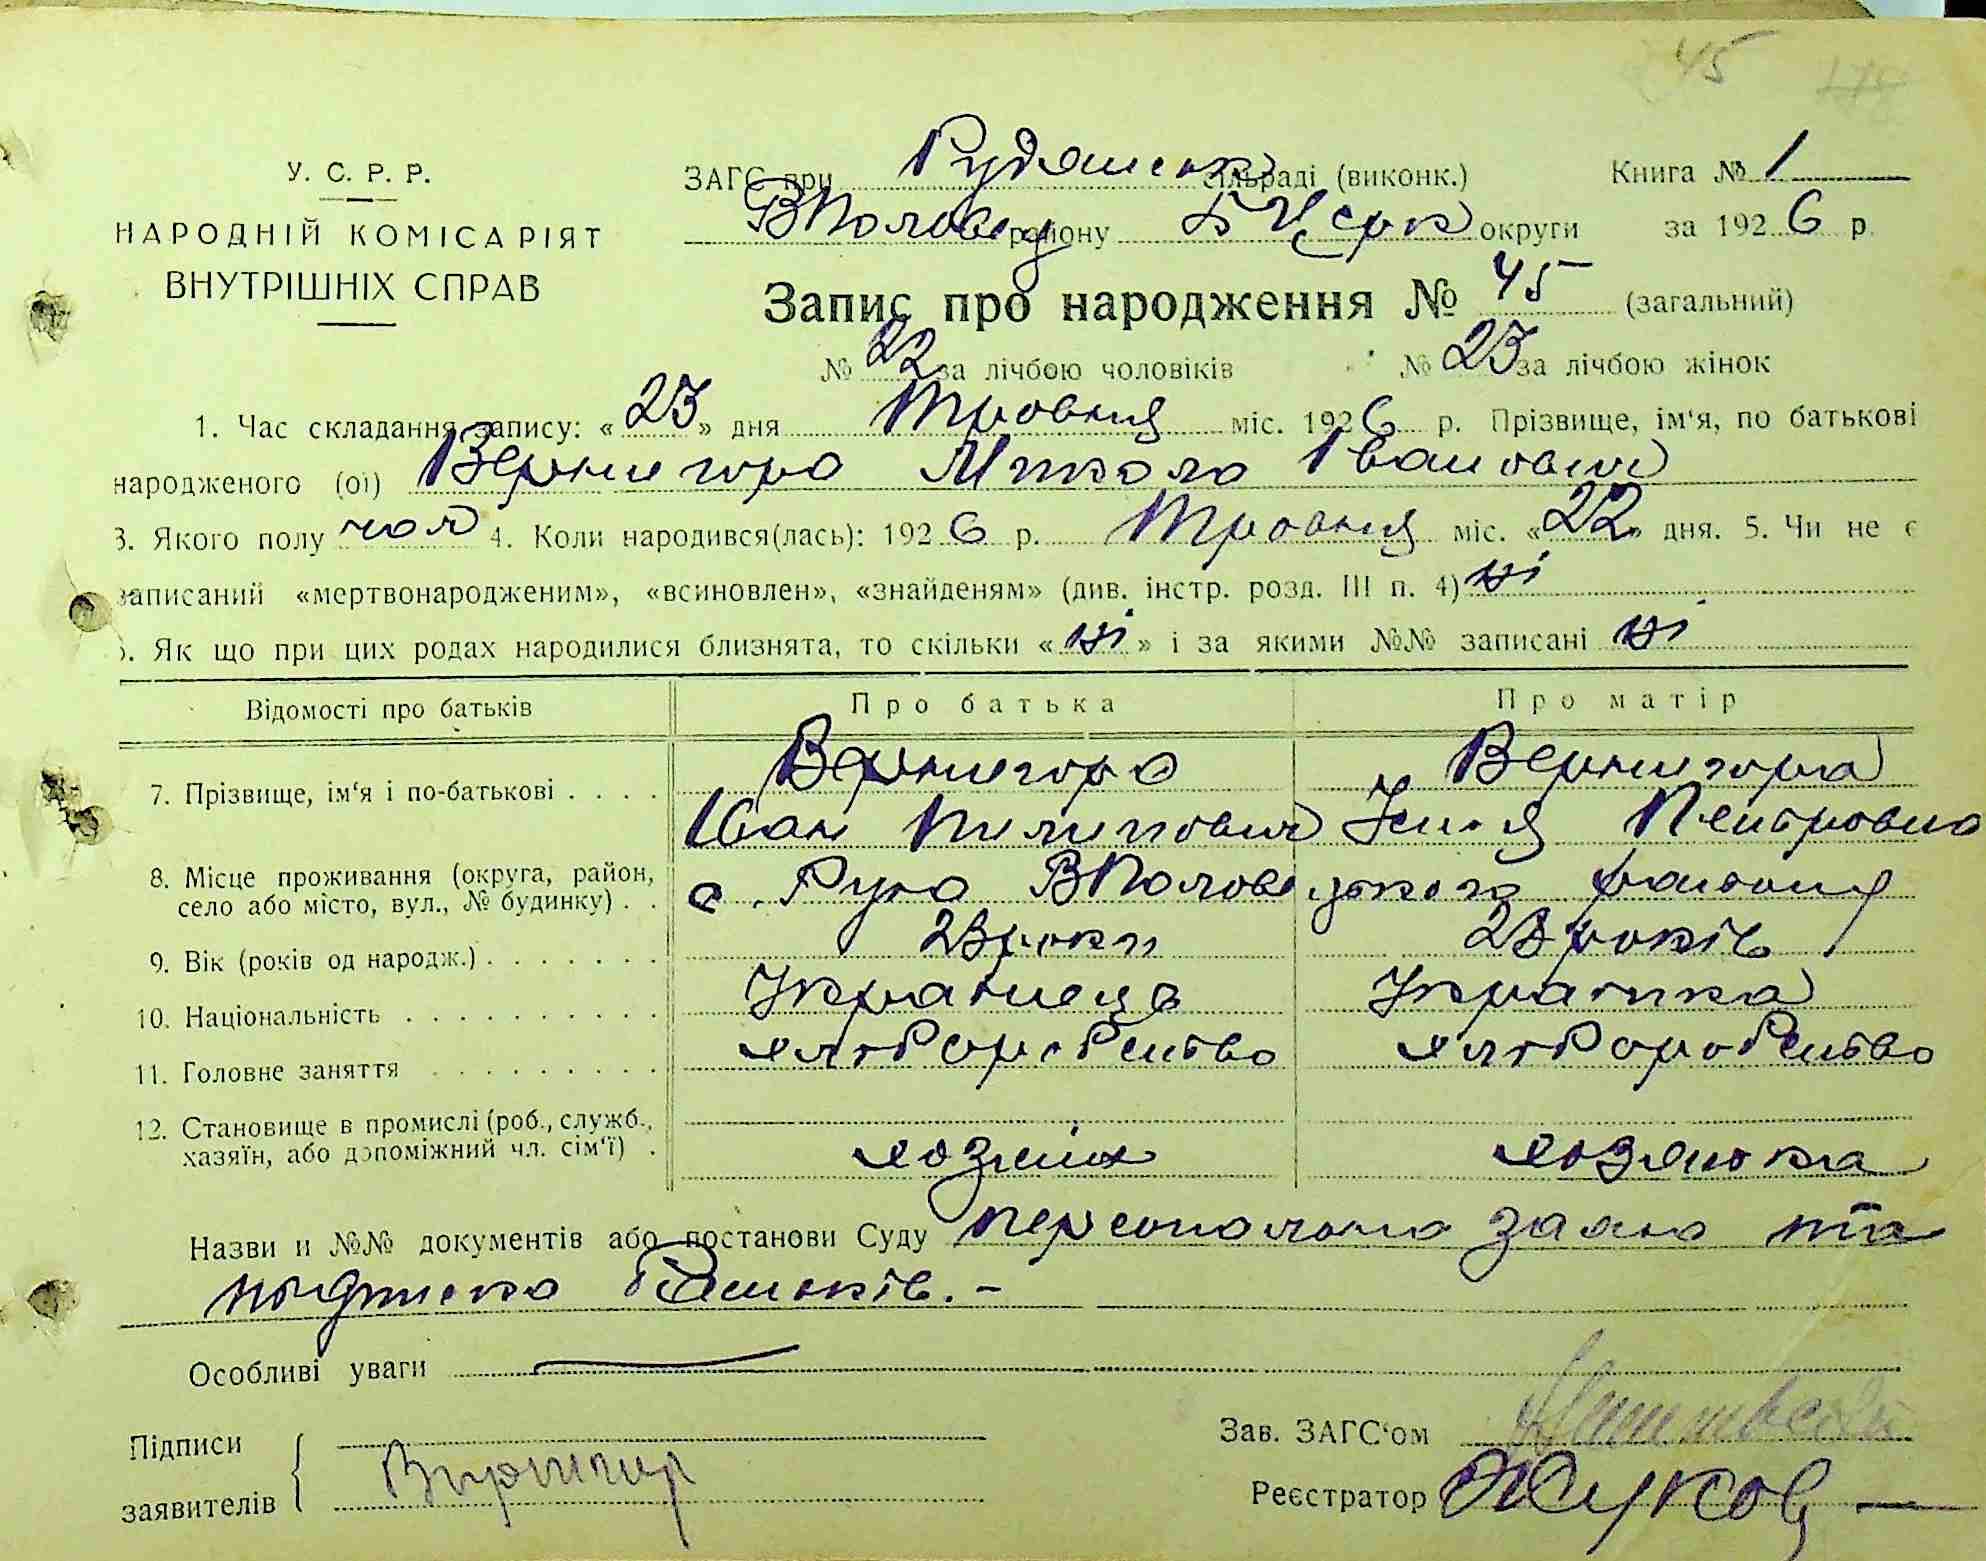 45
У. С. Р. Р.
НАРОДНІЙ КОМІСАРІЯТ
ВНУТРІШНІХ СПРАВ
ЗАГС при Рудянськ сільраді (виконк.) Книга № 1
ВПоловец району Б Церк округи за 1926 р.
Запис про народження № 45 (загальний)
№ 22 за лічбою чоловіків № 23 за лічбою жінок
1. Час складання запису: «23» дня Травня міс. 1926 р. Прізвище, ім'я, по батькові
народженого (ої) Вернигора Микола Іванович
3. Якого полу чол 4. Коли народився(лась): 1926 р. Травня міс. «22» дня. 5. Чи не є
записаний «мертвонародженим», «всиновлен», «знайденям» (див. інстр. розд. III п. 4) ні
6. Як що при цих родах народилися близнята, то скільки «ні» і за якими №№ записані ні
Відомості про батьків Про батька Про матір
7. Прізвище, ім'я і по-батькові . . . . Вернигора Вернигора
Іван Пилипович Петровна
8. Місце проживання (округа, район,
село або місто, вул., № будинку) . . с. Руда ВПоловецького району
9. Вік (років од народж.) . . . . . . . 23 роки 23 років
10. Національність . . . . . . . . . . Украинець Украинка
11. Головне заняття . . . . . . . . . хліборобство хліборобство
12. Становище в промислі (роб., служб.,
хазяїн, або допоміжний чл. сім'ї) . хозяін хозяйка
Назви и №№ документів або постанови Суду персональна заява та
подписка батьків. -
Особливі уваги
Підписи
заявителів
Зав. ЗАГС'ом
Реєстратор Жуков